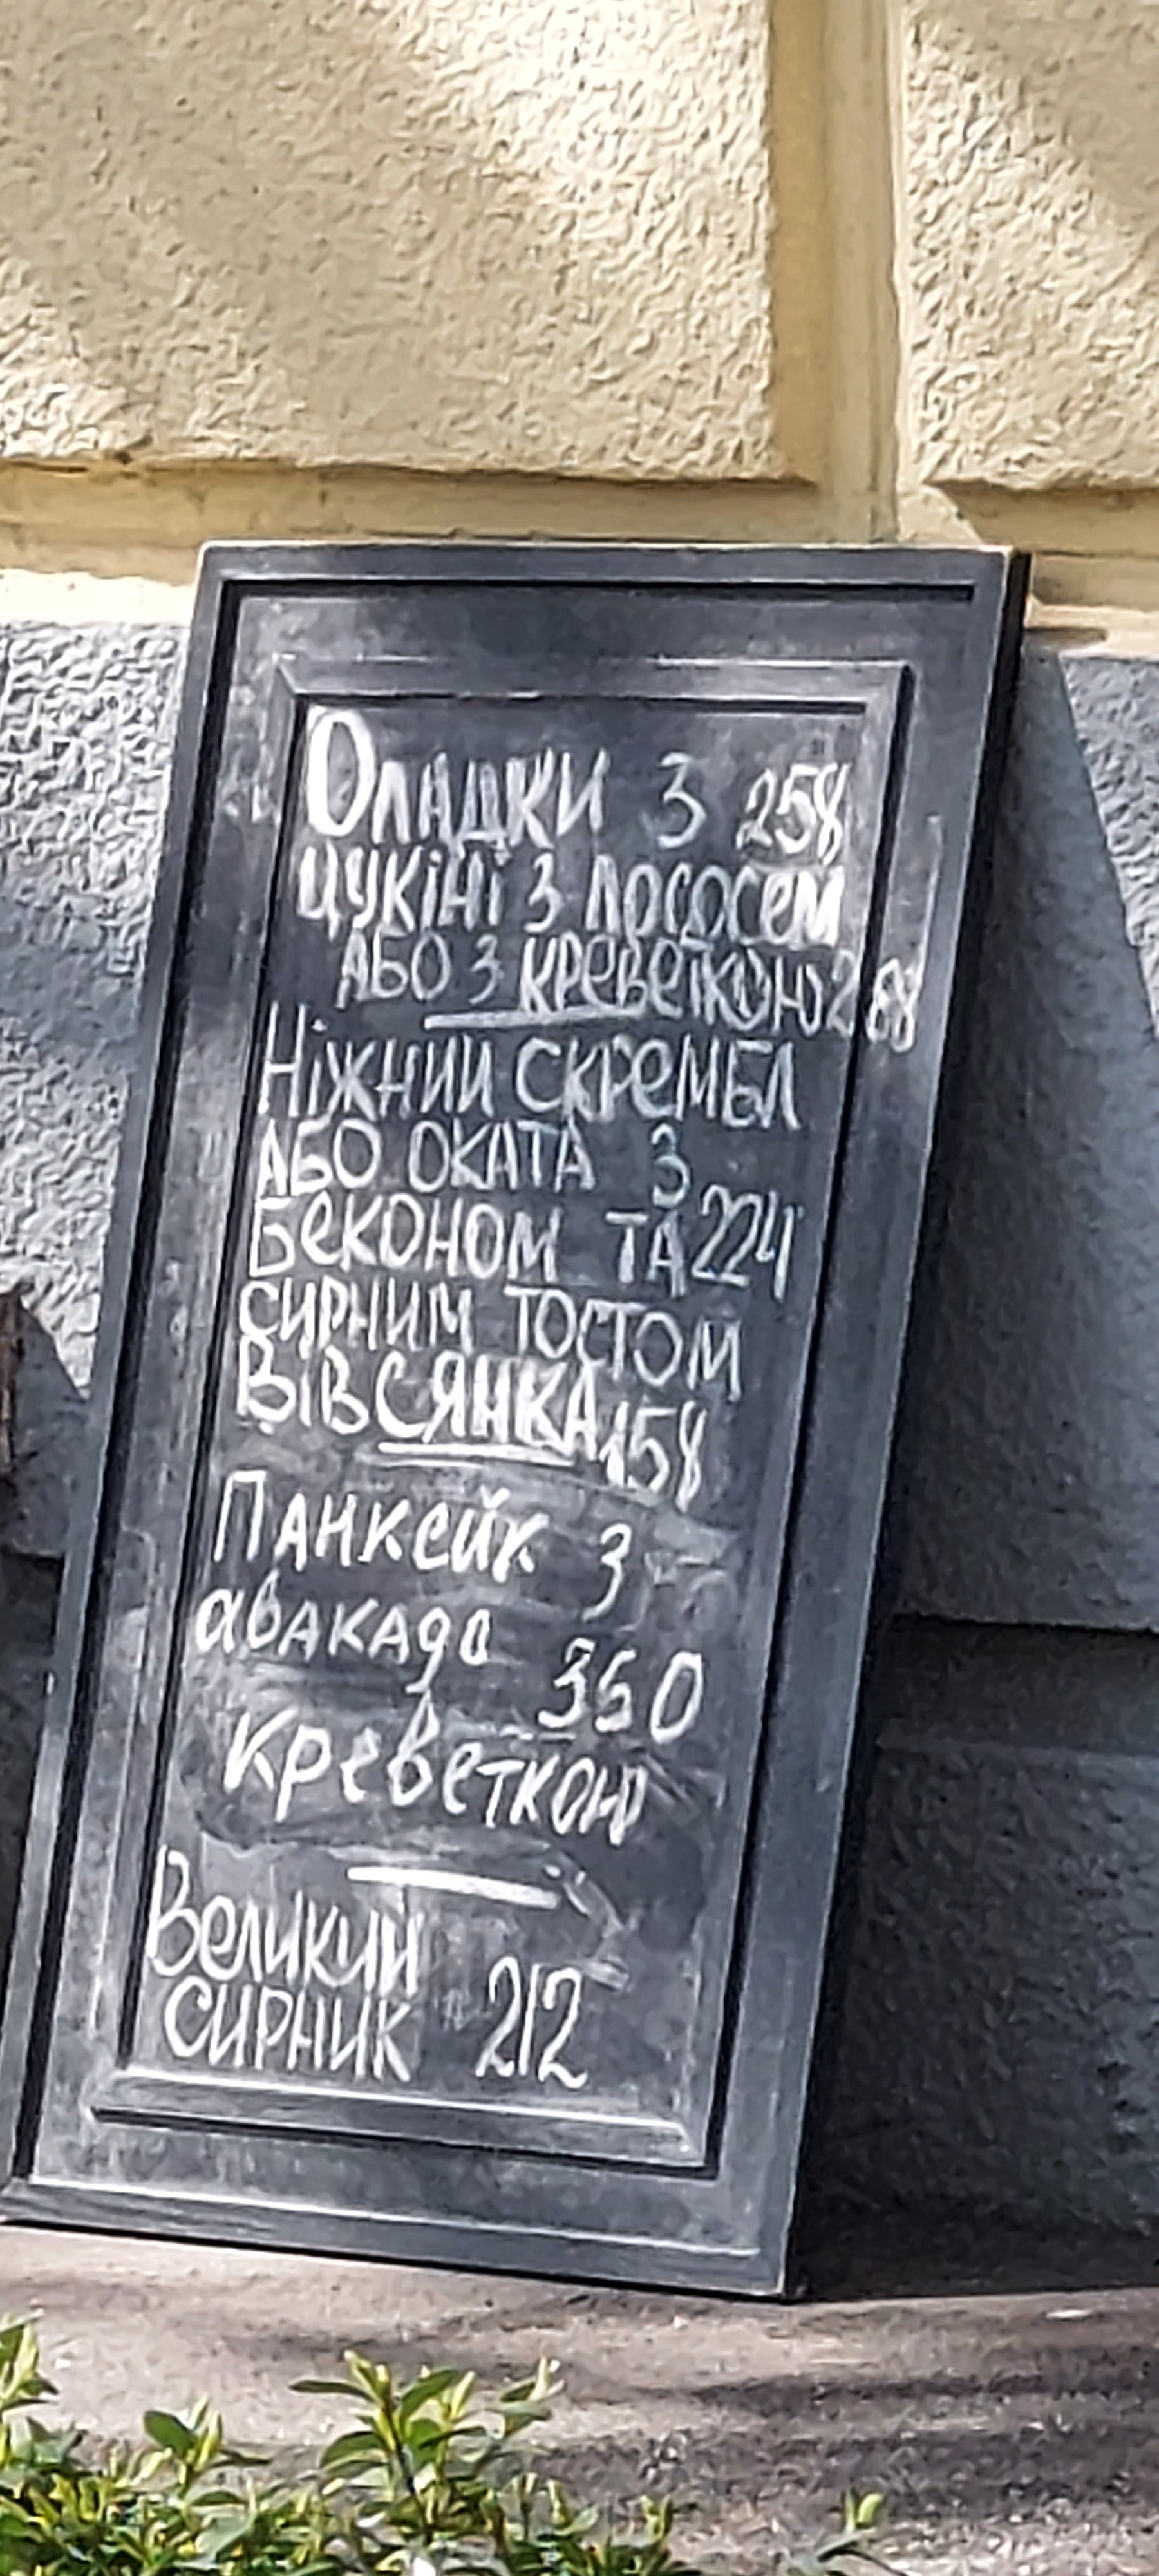 Оладки з 258
цукіні з лососем
або з креветкою 288
Ніжний скрембл
або оката з
беконом та 224
сирним тостом
Вівсянка 158
Панкейк з
авакадо 350
креветкою
Великий
сирник 212